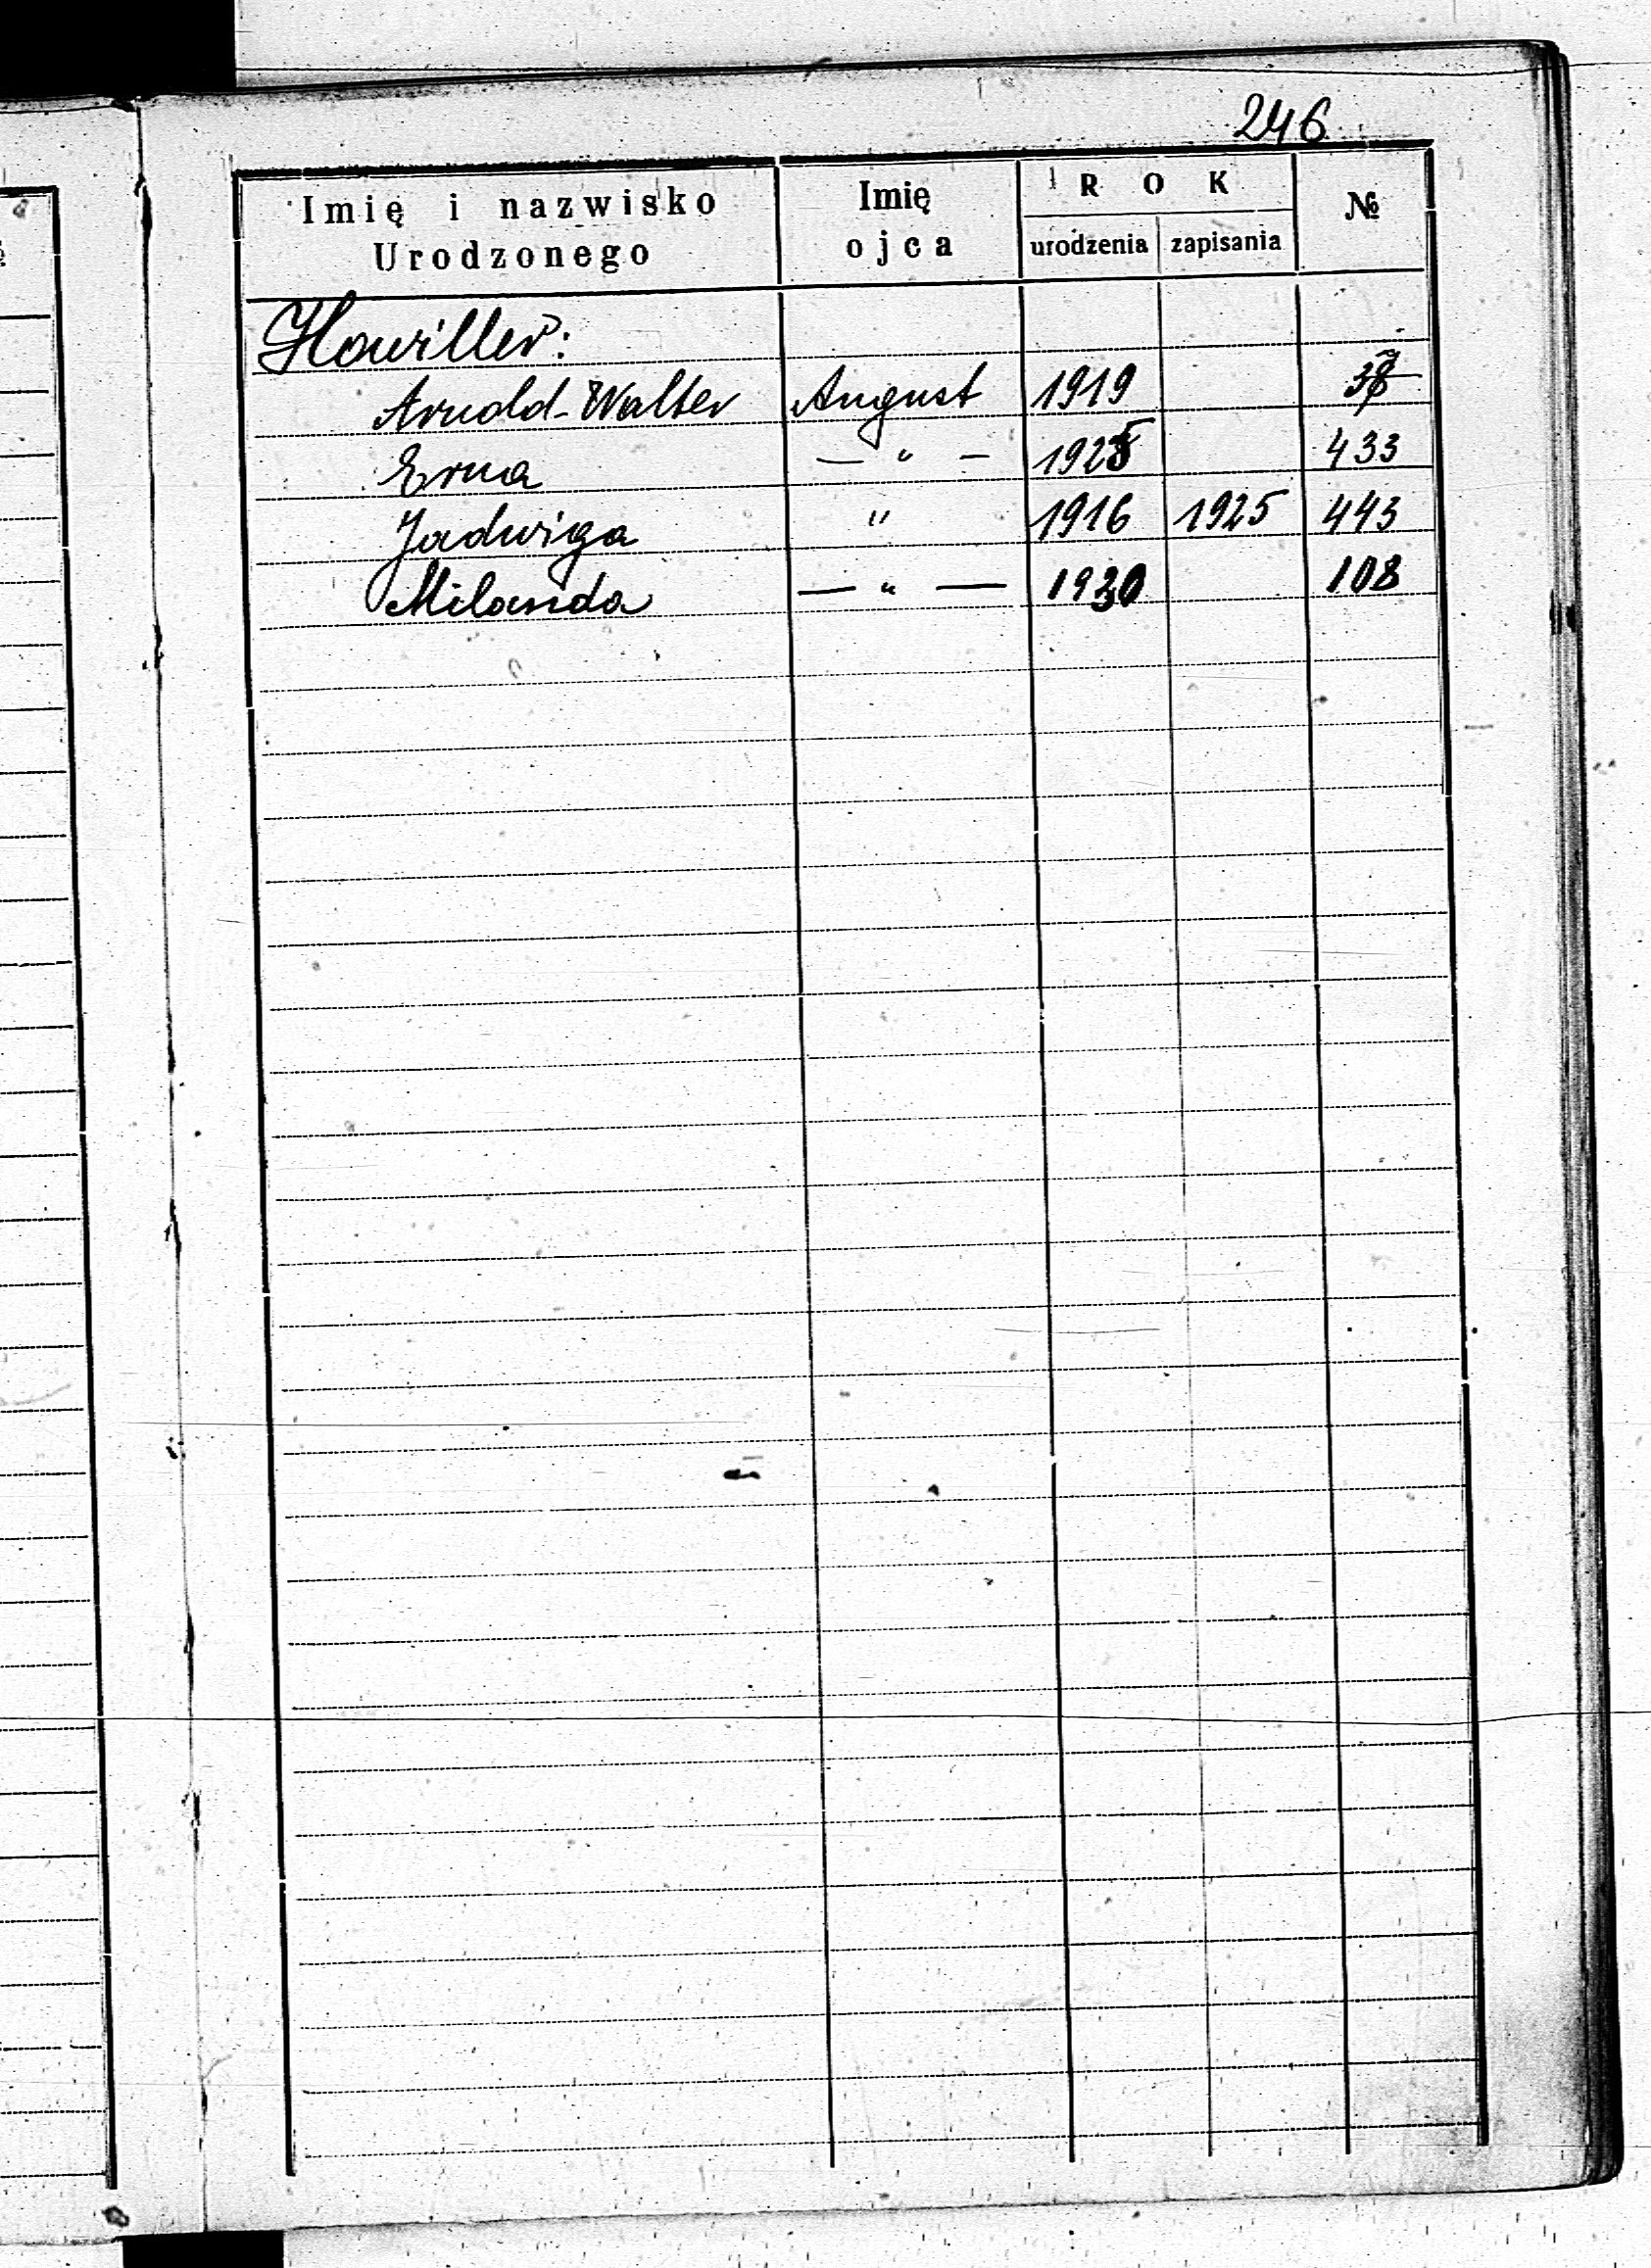 246
Imię i nazwisko Urodzonego Imię ojca ROK urodzenia zapisania №
Hawiller:
Arnold-Walter August 1919
Erna — " — 1925 433
Jadwiga " 1916 1925 443
Milanda — " — 1930 108